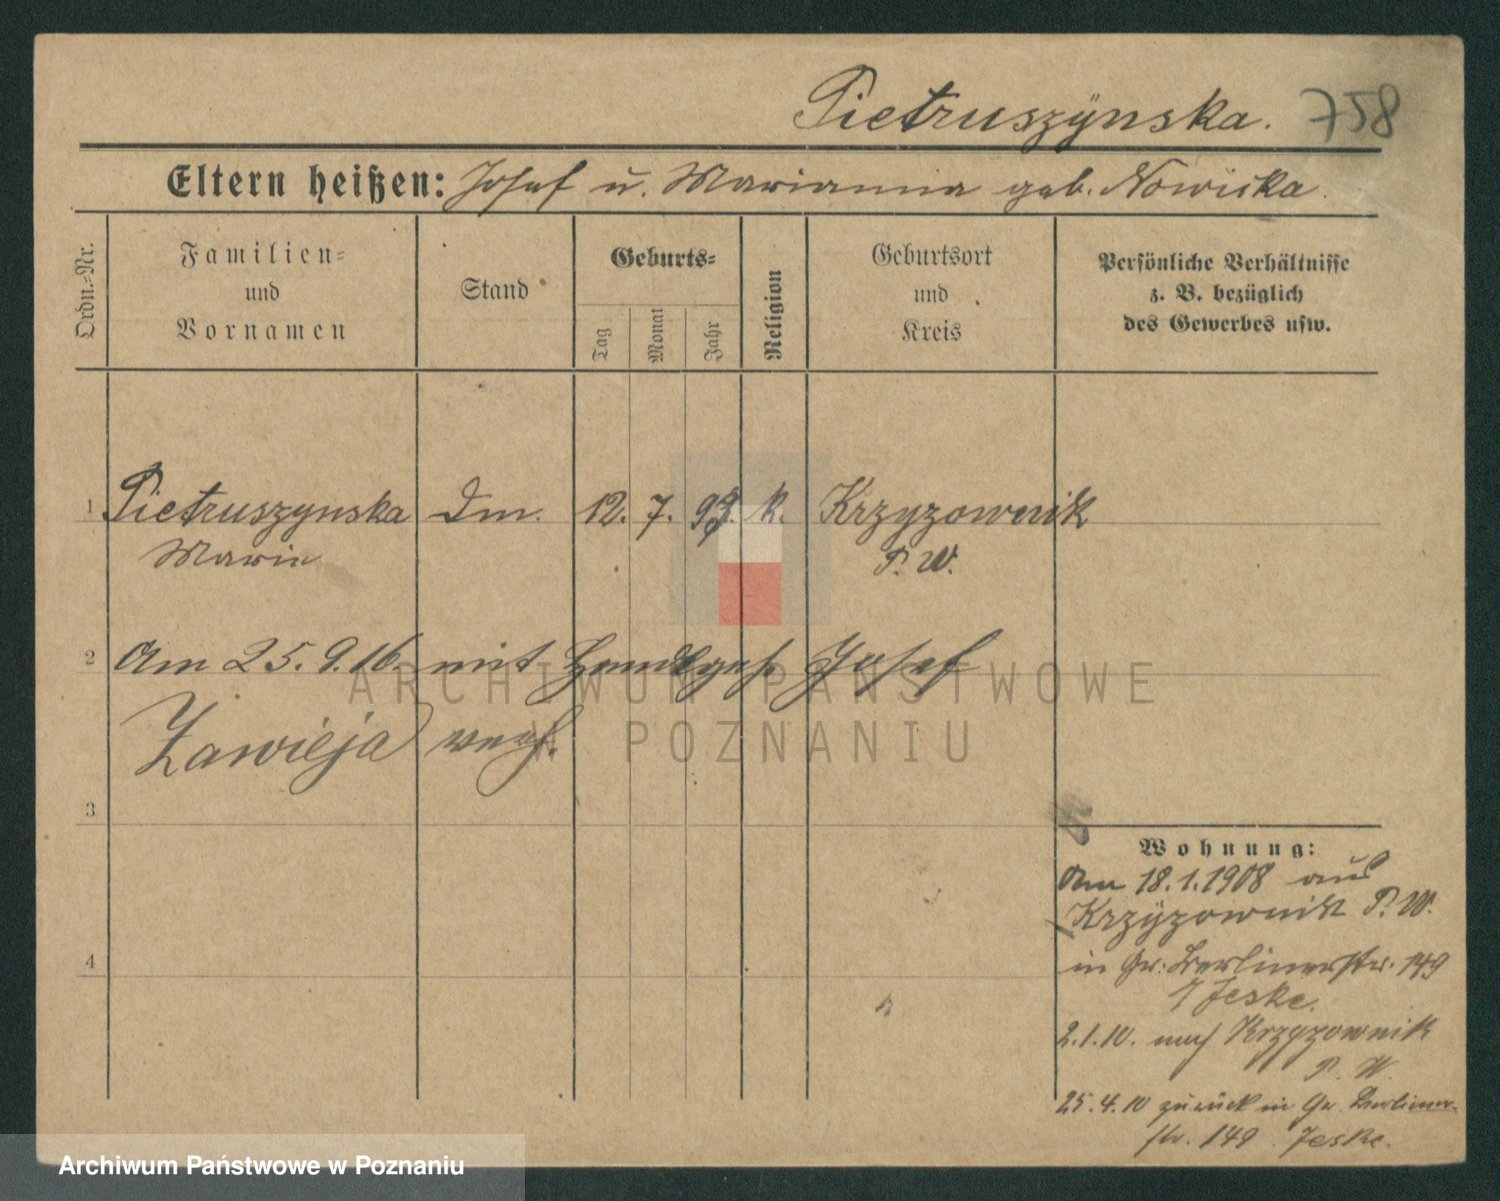 Pietruszÿnska. 758
Eltern heißen: Josef u. Marianna geb. Nowicka.
Ordn.-Nr.
Familien-
und
Vornamen
Stand
Geburts-
Tag
Monat
Jahr
Religion
Geburtsort
und
Kreis
Persönliche Verhältnisse
z. B. bezüglich
des Gewerbes usw.
1 Pietruszynska Dm. 12. 7. k. Krzyzownik
Marie P. W.
2 Am 25. 9. 16. mit Josef
Zawieja verh.
3
Wohnung:
Am 18.1.1908 aus
Krzÿzownik P. W.
4
in Gr. Berlinerstr. 149
Jeske.
2.1.10. nach Krzyzownik
P. W.
25.4.10 zurück in Gr. Berliner-
str. 149 Jeske.
ARCHIWUM PAŃSTWOWE
W POZNANIU
Archiwum Państwowe w Poznaniu